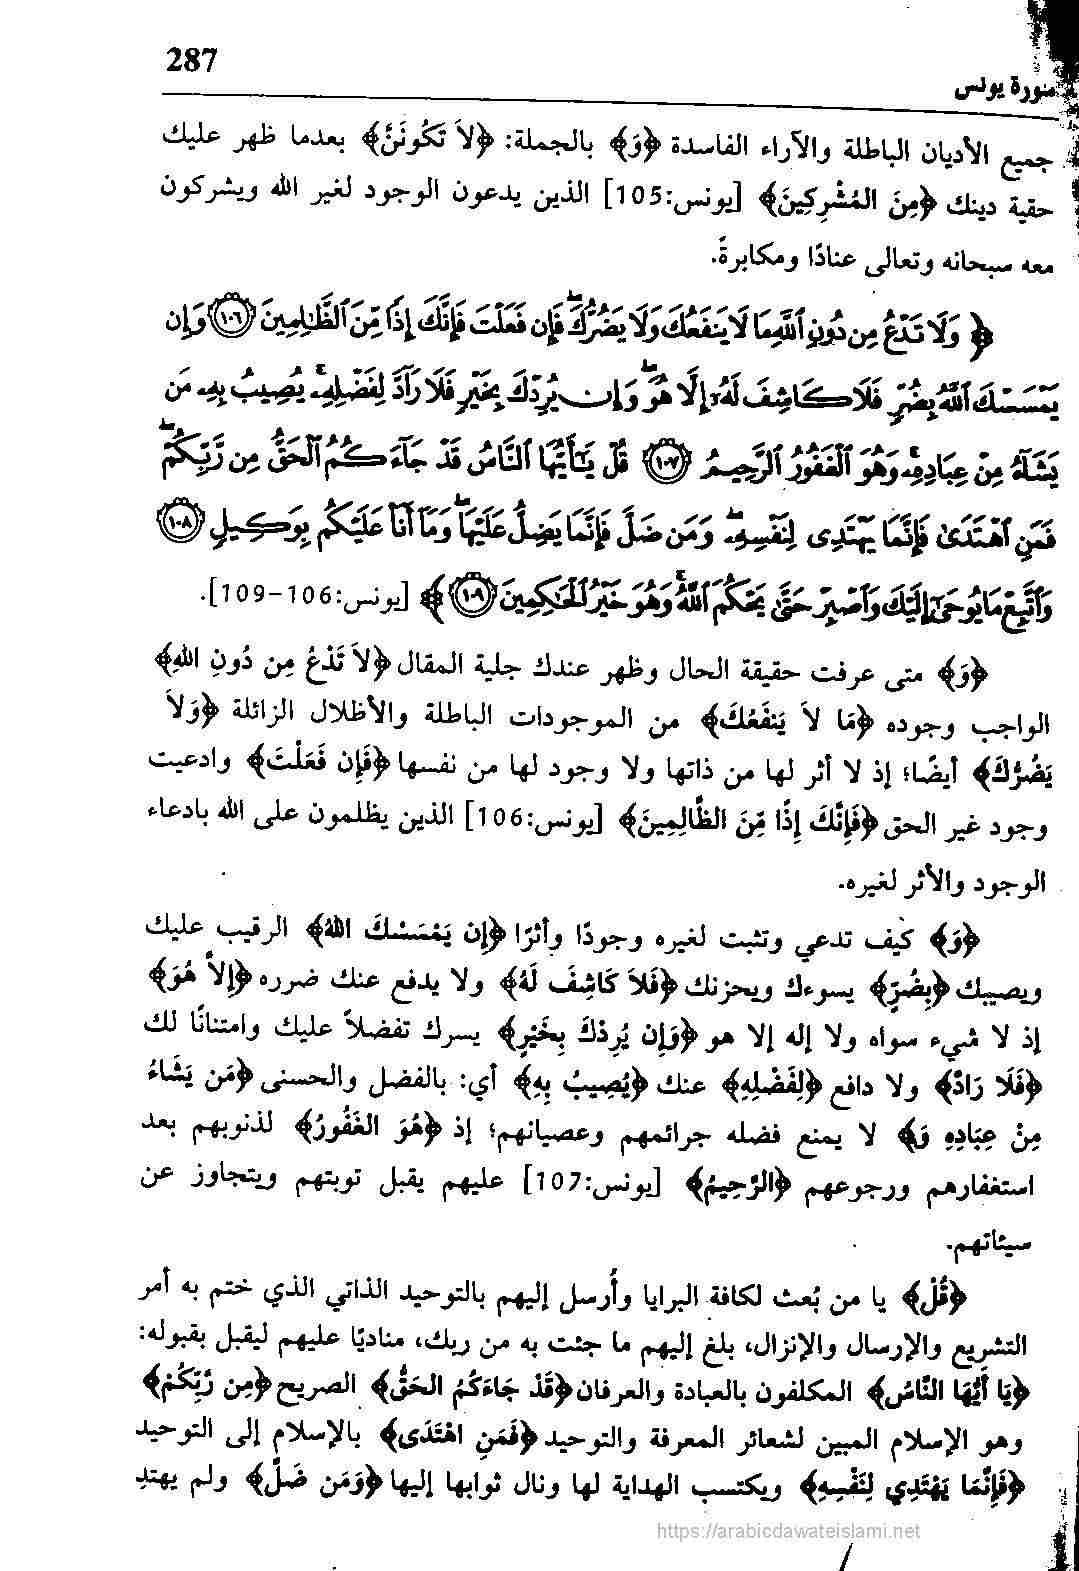 287
سورة يونس
جميع الأديان الباطلة والآراء الفاسدة ﴿وَ﴾ بالجملة: ﴿لاَ تَكُونَنَّ﴾ بعدما ظهر عليك
حقية دينك ﴿مِنَ المُشْرِكِينَ﴾ [يونس:105] الذين يدعون الوجود لغير الله ويشركون
معه سبحانه وتعالى عنادًا ومكابرةً.
﴿وَلَا تَدْعُ مِن دُونِ ٱللَّهِ مَا لَا يَنفَعُكَ وَلَا يَضُرُّكَ ۖ فَإِن فَعَلْتَ فَإِنَّكَ إِذًا مِّنَ ٱلظَّٰلِمِينَ ١٠٦ وَإِن
يَمْسَسْكَ ٱللَّهُ بِضُرٍّ فَلَا كَاشِفَ لَهُۥٓ إِلَّا هُوَ ۖ وَإِن يُرِدْكَ بِخَيْرٍ فَلَا رَآدَّ لِفَضْلِهِۦ ۚ يُصِيبُ بِهِۦ مَن
يَشَآءُ مِنْ عِبَادِهِۦ ۚ وَهُوَ ٱلْغَفُورُ ٱلرَّحِيمُ ١٠٧ قُلْ يَٰٓأَيُّهَا ٱلنَّاسُ قَدْ جَآءَكُمُ ٱلْحَقُّ مِن رَّبِّكُمْ ۖ
فَمَنِ ٱهْتَدَىٰ فَإِنَّمَا يَهْتَدِى لِنَفْسِهِۦ ۖ وَمَن ضَلَّ فَإِنَّمَا يَضِلُّ عَلَيْهَا ۖ وَمَآ أَنَا۠ عَلَيْكُم بِوَكِيلٍ ١٠٨
وَٱتَّبِعْ مَا يُوحَىٰٓ إِلَيْكَ وَٱصْبِرْ حَتَّىٰ يَحْكُمَ ٱللَّهُ ۚ وَهُوَ خَيْرُ ٱلْحَٰكِمِينَ ١٠٩﴾ [يونس:106-109].
﴿وَ﴾ متى عرفت حقيقة الحال وظهر عندك جلية المقال ﴿لاَ تَدْعُ مِن دُونِ اللهِ﴾
الواجب وجوده ﴿مَا لاَ يَنفَعُكَ﴾ من الموجودات الباطلة والأظلال الزائلة ﴿وَلاَ
يَضُرُّكَ﴾ أيضًا؛ إذ لا أثر لها من ذاتها ولا وجود لها من نفسها ﴿فَإِن فَعَلْتَ﴾ وادعيت
وجود غير الحق ﴿فَإِنَّكَ إِذًا مِّنَ الظَّالِمِينَ﴾ [يونس:106] الذين يظلمون على الله بادعاء
الوجود والأثر لغيره.
﴿وَ﴾ كيف تدعي وتثبت لغيره وجودًا وأثرًا ﴿إِن يَمْسَسْكَ اللهُ﴾ الرقيب عليك
ويصيبك ﴿بِضُرٍّ﴾ يسوءك ويحزنك ﴿فَلاَ كَاشِفَ لَهُ﴾ ولا يدفع عنك ضرره ﴿إِلاَّ هُوَ﴾
إذ لا شيء سواه ولا إله إلا هو ﴿وَإِن يُرِدْكَ بِخَيْرٍ﴾ يسرك تفضلاً عليك وامتنانًا لك
﴿فَلَا رَادَّ﴾ ولا دافع ﴿لِفَضْلِهِ﴾ عنك ﴿يُصِيبُ بِهِ﴾ أي: بالفضل والحسنى ﴿مَن يَشَاءُ
مِنْ عِبَادِهِ وَ﴾ لا يمنع فضله جرائمهم وعصيانهم؛ إذ ﴿هُوَ الغَفُورُ﴾ لذنوبهم بعد
استغفارهم ورجوعهم ﴿الرَّحِيمُ﴾ [يونس:107] عليهم يقبل توبتهم ويتجاوز عن
سيئاتهم.
﴿قُلْ﴾ يا من بُعث لكافة البرايا وأُرسل إليهم بالتوحيد الذاتي الذي ختم به أمر
التشريع والإرسال والإنزال، بلغ إليهم ما جئت به من ربك، مناديًا عليهم ليقبل بقبوله:
﴿يَا أَيُّهَا النَّاسُ﴾ المكلفون بالعبادة والعرفان ﴿قَدْ جَاءَكُمُ الحَقُّ﴾ الصريح ﴿مِن رَّبِّكُمْ﴾
وهو الإسلام المبين لشعائر المعرفة والتوحيد ﴿فَمَنِ اهْتَدَى﴾ بالإسلام إلى التوحيد
﴿فَإِنَّمَا يَهْتَدِي لِنَفْسِهِ﴾ ويكتسب الهداية لها ونال ثوابها إليها ﴿وَمَن ضَلَّ﴾ ولم يهتدِ
https://arabicdawateislami.net